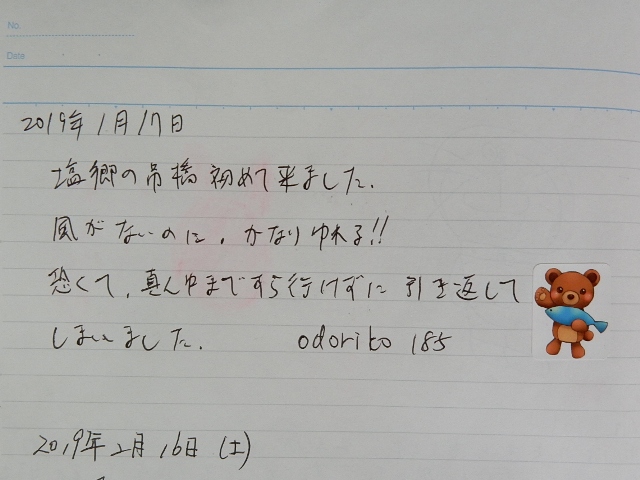 No.
Date
2019年1月17日
塩郷の吊橋初めて来ました.
風がないのに,かなりゆれる!!
恐くて,真ん中まですら行けずに引き返して
しまいました. odoriko 185
2019年2月16日(土)